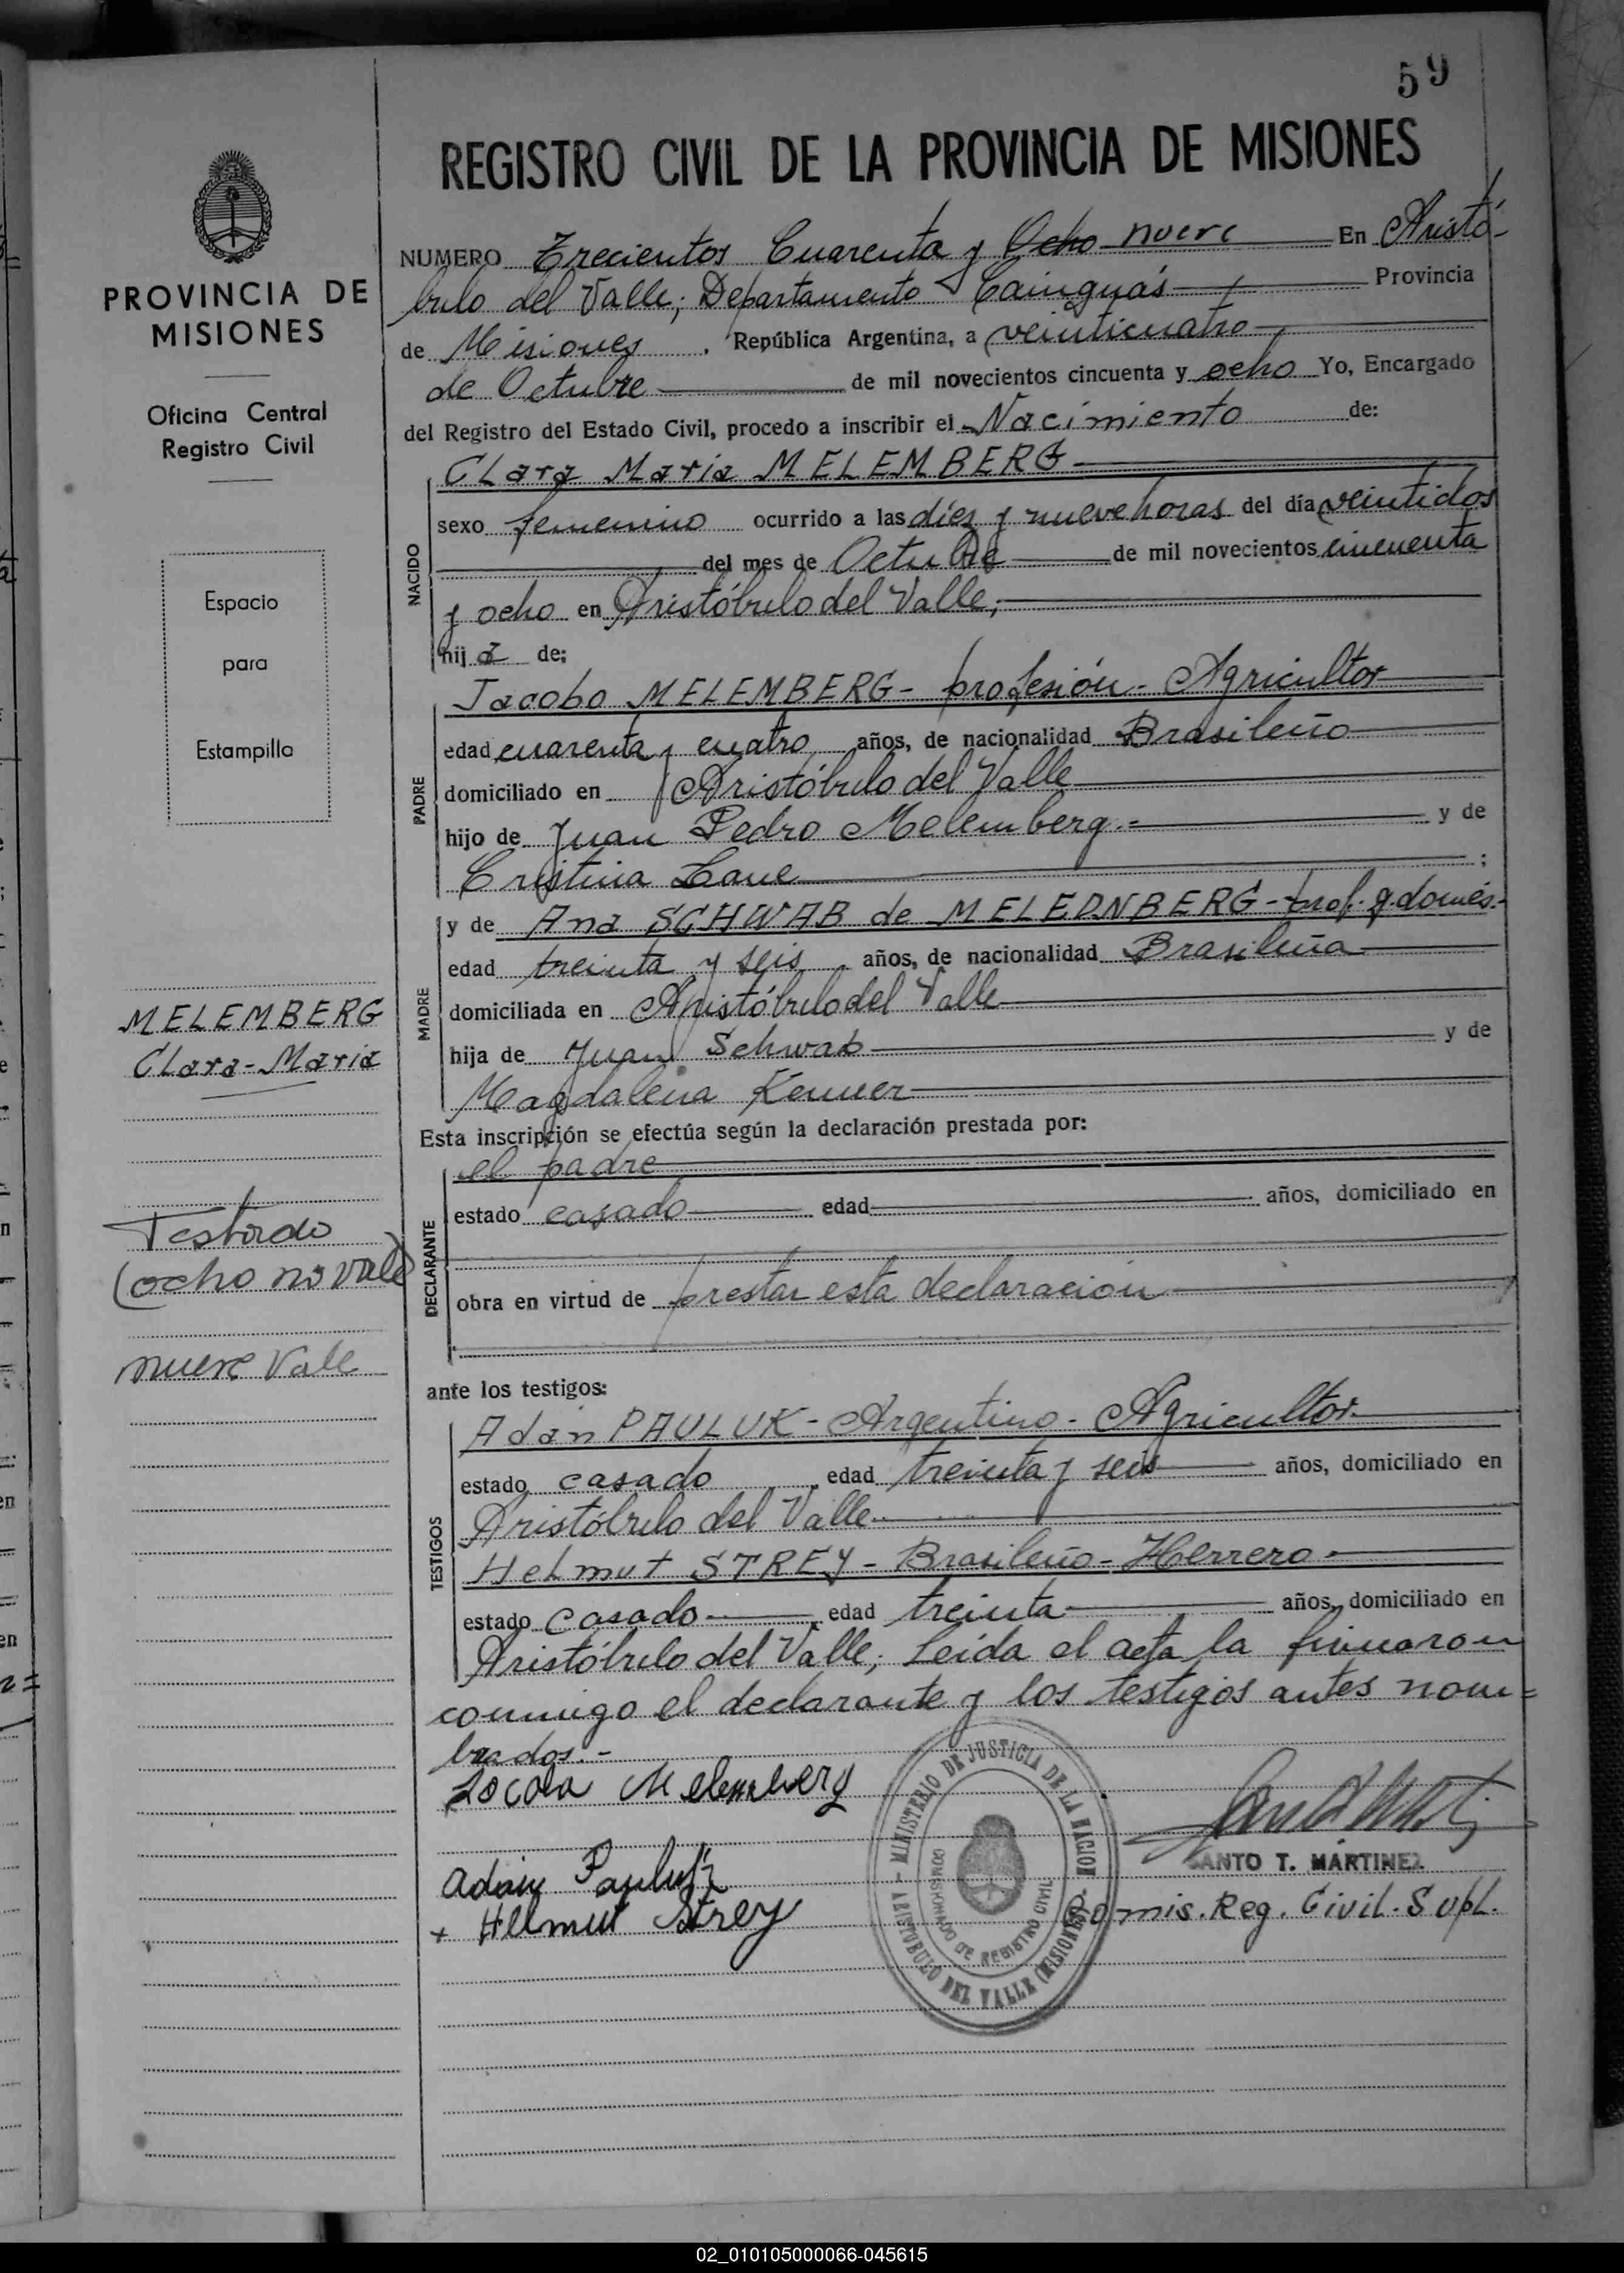 59
REGISTRO CIVIL DE LA PROVINCIA DE MISIONES
NUMERO Trecientos Cuarenta y Ocho nueve En Aristó-
bulo del Valle; Departamento Cainguás Provincia
de Misiones, República Argentina, a veinticuatro
de Octubre de mil novecientos cincuenta y ocho Yo, Encargado
del Registro del Estado Civil, procedo a inscribir el Nacimiento de:
NACIDO
Clara María MELEMBERG
sexo femenino ocurrido a las diez y nueve horas del día veintidos
del mes de Octubre de mil novecientos cincuenta
y ocho en Aristóbulo del Valle;
hija de:
PADRE
Jacobo MELEMBERG- profesión- Agricultor
edad cuarenta y cuatro años, de nacionalidad Brasileño
domiciliado en Aristóbulo del Valle
hijo de Juan Pedro Melemberg.- y de
Cristina Laue ;
MADRE
y de Ana SCHWAB de MELEDNBERG- prof. q. domés.-
edad treinta y seis años, de nacionalidad Brasileña
domiciliada en Aristóbulo del Valle
hija de Juan Schwab y de
Magdalena Kenner
Esta inscripción se efectúa según la declaración prestada por:
DECLARANTE
el padre
estado casado edad años, domiciliado en
obra en virtud de prestar esta declaración
ante los testigos:
TESTIGOS
Adán PAULUK- Argentino- Agricultor.
estado casado edad treinta y seis años, domiciliado en
Aristóbulo del Valle
Helmut STREY- Brasileño- Herrero-
estado casado edad treinta años, domiciliado en
Aristóbulo del Valle; Leída el acta la firmaron
conmigo el declarante y los testigos antes nom=
brados.-
Melemberg
Adan
+ Helmut Strey
MINISTERIO DE JUSTICIA DE LA NACION
ARISTOBULO DEL VALLE (MISIONES)
DE REGISTRO CIVIL
SANTO T. MARTINEZ
Comis. Reg. Civil. Supl.
PROVINCIA DE
MISIONES
Oficina Central
Registro Civil
Espacio
para
Estampilla
MELEMBERG
Clara-María
Testado
(ocho no vale)
nueve Vale
02_010105000066-045615